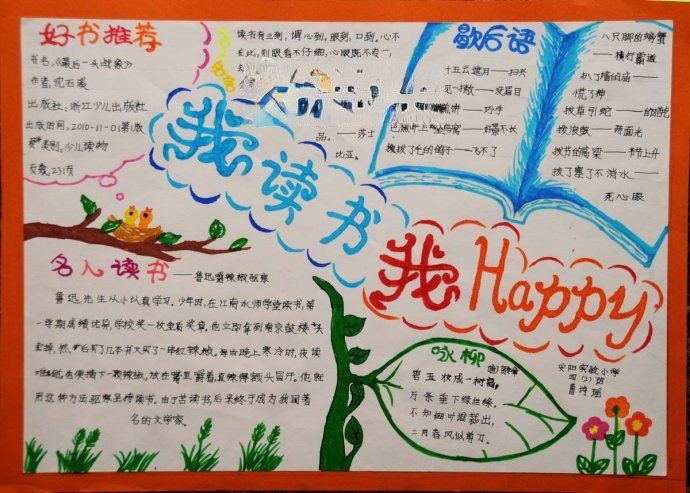 好书推荐
书名：《最后一头战象》
作者：沈石溪
出版社：浙江少儿出版社
出版时间：2010-11-01(第1版
类别：少儿读物
页数：231页
读书有三到，谓心到，眼到，口到。心不
在此，则眼看不仔细，心眼既不专一，
品。——莎士
比亚。
歇后语
十五云遮月——扫兴
——没眉目
——巧手
——好景不长
拔了毛的鸽子——飞不了
八只脚的螃蟹
——横行霸道
扒了墙的庙——
慌了神
拨草引蛇——
拨浪鼓——两面光
拔节的高粱——节节上升
拔了塞了不淌水——
死心眼
我读书
我Happy
名人读书——鲁迅嚼辣椒驱寒
鲁迅先生从小认真学习。少年时，在江南水师学堂读书，第
一学期成绩优异，学校奖一枚金质奖章，他立即拿到南京鼓楼街头
卖掉，然后买了几本书又买了一串红辣椒。每当晚上寒冷时，夜读
难耐，他便摘下一颗辣椒，放在嘴里嚼着直辣得额头冒汗。他就
用这种方法驱寒坚持读书。由于苦读书后来终于成为我国著
名的文学家。
咏柳
碧玉妆成一树高，
万条垂下绿丝绦。
不知细叶谁裁出，
二月春风似剪刀。
安阳实验小学
四(2)班
鲁诗瑶